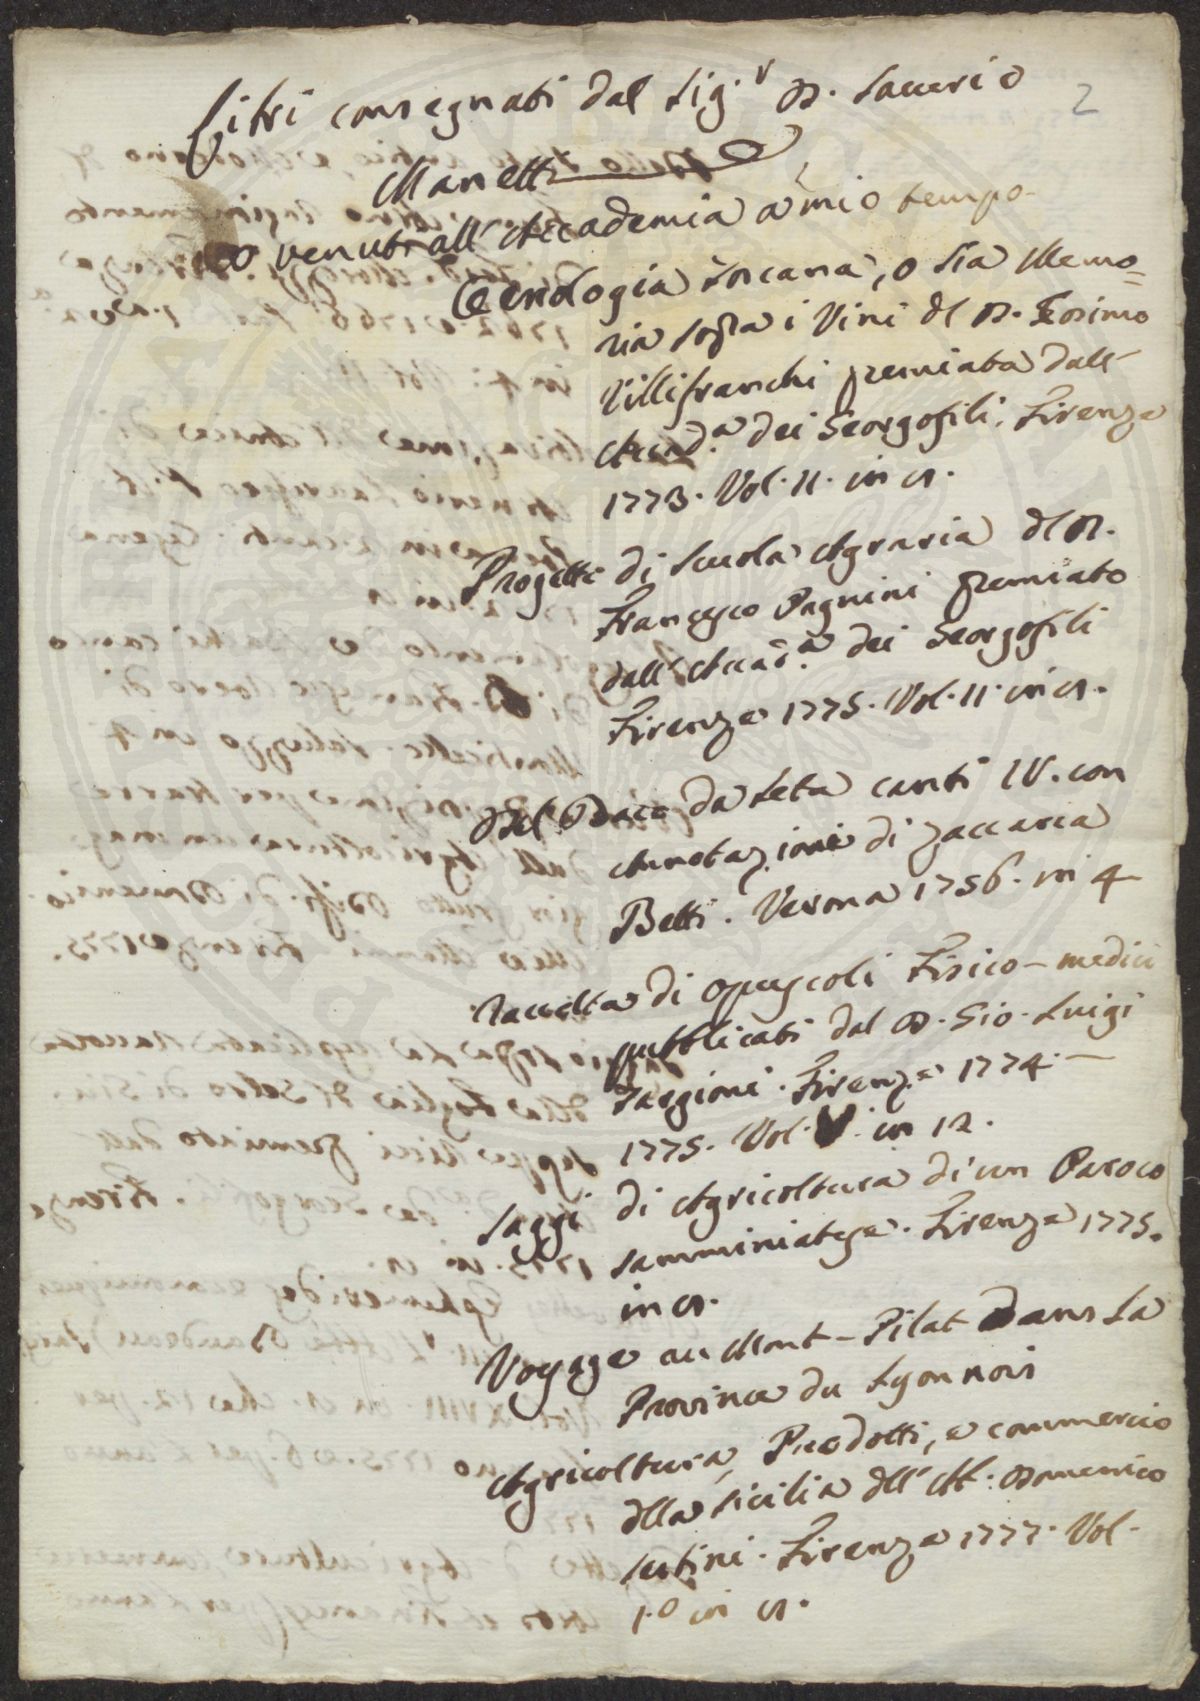 2
Libri consegnati dal Sig.r D. Saverio
Manetti
o venuti all'Accademia a mio tempo
Oenologia Toscana, o sia Memo=
ria sopra i Vini del D. Cosimo
Villifranchi premiata dall'
Accad.a dei Georgofili. Firenze
1773. Vol. II. in 8.
Progetti di Scuola Agraria del D.
Francesco Pagnini premiato
dall'Accad.a dei Georgofili
Firenze 1775. Vol. II. in 8.
Del Baco da Seta canti IV. con
Annotazioni di Zaccaria
Betti. Verona 1756. in 4
Raccolta di opuscoli Fisico-medici
pubblicati dal D. Gio. Luigi
Targioni. Firenze 1774. —
1775. Vol. V. in 12.
Saggi di Agricoltura di un Paroco
Samminiatese. Firenze 1775.
in 8.
Voyage au Mont-Pilat Dans La
Province du Lyonnois
Agricoltura, Prodotti, e commercio
della Sicilia dell'Ab. Domenico
Sestini. Firenze 1777. Vol.
1.o in 8.